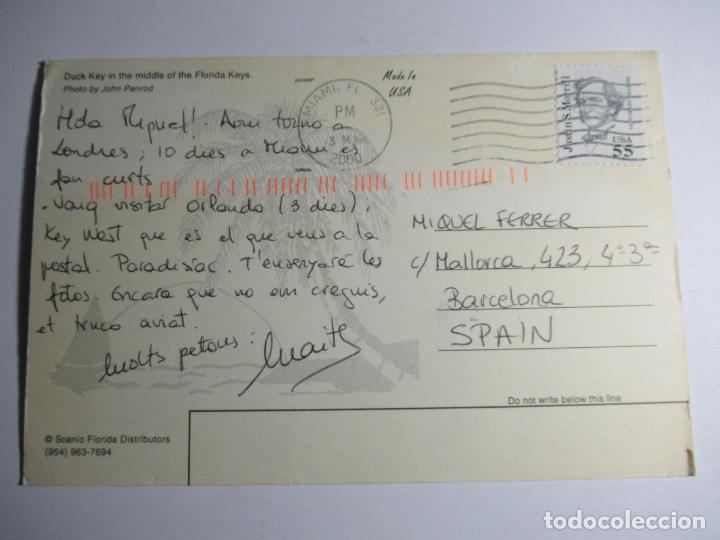 Duck Key in the middle of the Florida Keys.
Photo by John Penrod
Made In
USA
MIAMI, FL 331
PM
2000
Justin S. Morrill
USA
55
Hola Miquel! Aquí torno a
Londres; 10 dies a Miami es
fan curts
. Vaig visitar Orlando (3 dies),
Key West que es el que veus a la
postal. Paradisíac. T'ensenyaré les
fotos. Encara que no em creguis,
et truco aviat.
Molts petons:
Maite
MIQUEL FERRER
c/ Mallorca, 423, 4º 3ª
Barcelona
SPAIN
Do not write below this line
© Scenic Florida Distributors
(954) 963-7694
todocoleccion